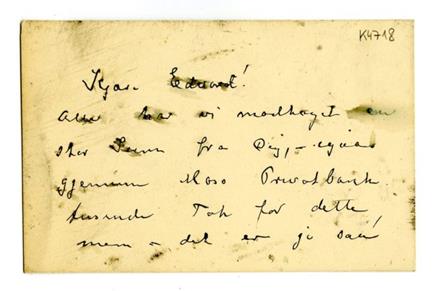 K4718
Kjære Edvard!
har vi modtaget en
stor Sum fra Dig, – igjen
gjennem Moss Privatbank.
tusende Tak for dette
men – det er jo saa